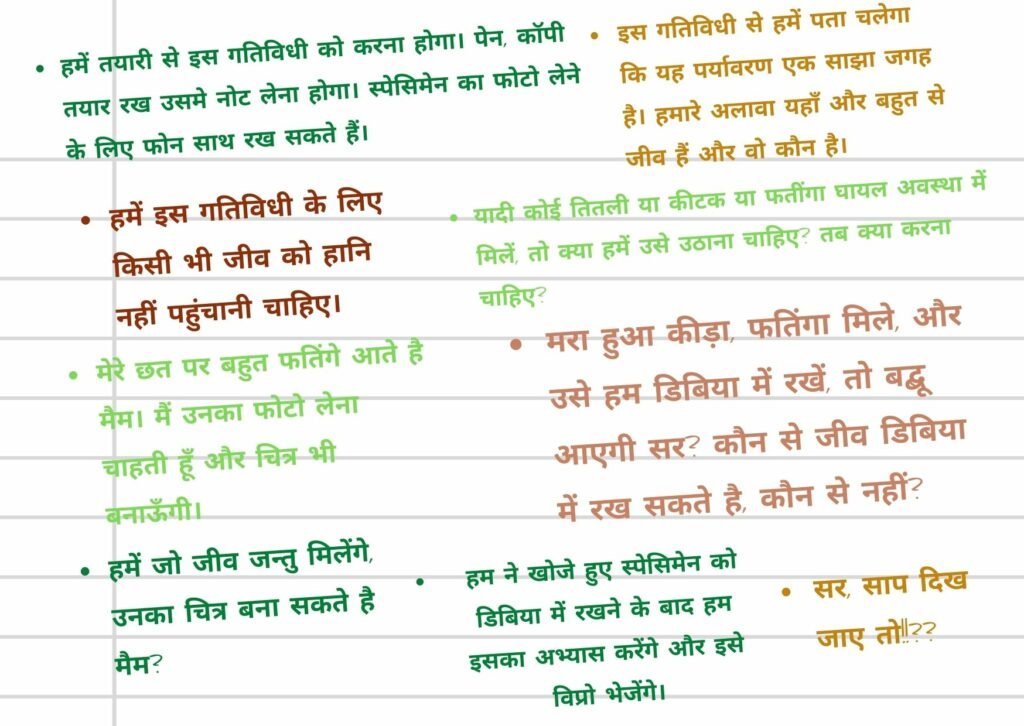 हमें तयारी से इस गतिविधी को करना होगा। पेन, कॉपी
तयार रख उसमे नोट लेना होगा। स्पेसिमेन का फोटो लेने
के लिए फोन साथ रख सकते हैं।
इस गतिविधी से हमें पता चलेगा
कि यह पर्यावरण एक साझा जगह
है। हमारे अलावा यहाँ और बहुत से
जीव हैं और वो कौन है।
हमें इस गतिविधी के लिए
किसी भी जीव को हानि
नहीं पहुंचानी चाहिए।
यादी कोई तितली या कीटक या फतींगा घायल अवस्था में
मिलें, तो क्या हमें उसे उठाना चाहिए? तब क्या करना
चाहिए?
मेरे छत पर बहुत फतिंगे आते है
मैम। मैं उनका फोटो लेना
चाहती हूँ और चित्र भी
बनाऊँगी।
मरा हुआ कीड़ा, फतिंगा मिले, और
उसे हम डिबिया में रखें, तो बद्बू
आएगी सर? कौन से जीव डिबिया
में रख सकते है, कौन से नहीं?
हमें जो जीव जन्तु मिलेंगे,
उनका चित्र बना सकते है
मैम?
हम ने खोजे हुए स्पेसिमेन को
डिबिया में रखने के बाद हम
इसका अभ्यास करेंगे और इसे
विप्रो भेजेंगे।
सर, साप दिख
जाए तो!!??